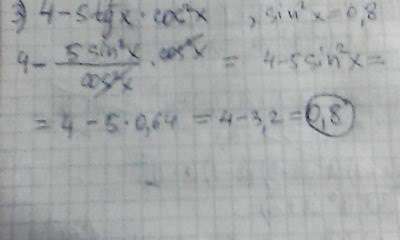 3) 4-5tgx·cos²x , sin²x=0,8
4 - 5sin²x/cos²x · cos²x = 4-5sin²x=
= 4-5·0,64 = 4-3,2 = 0,8